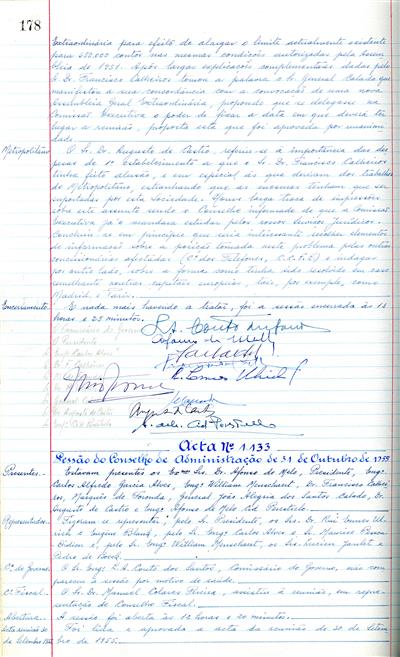 178
Extraordinária para efeito de alargar o limite actualmente existente
para 650.000 contos nas mesmas condições autorizadas pela Assem-
bleia de 1951. Após largas explicações complementares dadas pelo
Sr. Dr. Francisco Calheiros tomou a palavra o Sr. General Calado que
manifestou a sua concordância com a convocação de uma nova
Assembleia Geral Extraordinária, propondo que se delegasse na
Comissão Executiva o poder de fixar a data em que deverá ter
lugar a reunião, proposta esta que foi aprovada por unanimi-
dade.
Metropolitano O Sr. Dr. Augusto de Castro, referiu-se à importância das des-
pesas de 1º estabelecimento a que o Sr. Dr. Francisco Calheiros
tinha feito alusão, e em especial às que deviam dos trabalhos
do Metropolitano, estranhando que as mesmas tenham que ser
suportadas por esta Sociedade. Houve larga troca de impressões
sobre este assunto sendo o Conselho informado de que a Comissão
Executiva já o mandara estudar pelos nossos Serviços Jurídicos.
Concluiu-se em princípio que seria interessante recolher elementos
de informação sobre a posição tomada neste problema pelas outras
concessionárias afectadas (Cª dos Telefones, C.C.F.L.) e indagar
por outro lado, sobre a forma como tinha sido resolvido em caso
semelhante noutras capitais europeias, tais, por exemplo, como
Madrid e Paris.
Encerramento E nada mais havendo a tratar, foi a sessão encerrada às 13
horas e 25 minutos.
O Comissário do Governo
O Presidente
Engº Carlos Alves
Dr. Augusto de Castro
Acta Nº 1.133
Sessão do Conselho de Administração de 31 de Outubro de 1955
Presentes Estavam presentes os Exmos Srs. Dr. Afonso de Melo, Presidente, Engº
Carlos Alfredo Garcia Alves, Engº William Menschaert, Dr. Francisco Calhei-
ros, Marquês de Foronda, General João Alegria dos Santos Calado, Dr.
Augusto de Castro e Engº Afonso de Melo Cid Perestrelo.
Representados Fizeram-se representar; pelo Sr. Presidente, os Srs. Dr. Rui Ennes Ul-
rich e Eugène Blanq, pelo Sr. Engº Carlos Alves o Sr.
e pelo Sr. Engº William Menschaert, os Srs. Lucien
Cº do Governo O Sr. Engº L.A. Couto dos Santos, Comissário do Governo, não com-
pareceu à sessão por motivo de saúde.
Cº Fiscal O Sr. Dr. Manuel Colares Pereira, assistiu à reunião, em repre-
sentação do Conselho Fiscal.
Abertura A sessão foi aberta às 12 horas e 20 minutos.
Foi lida e aprovada a acta da reunião de 30 de Setem-
bro de 1955.